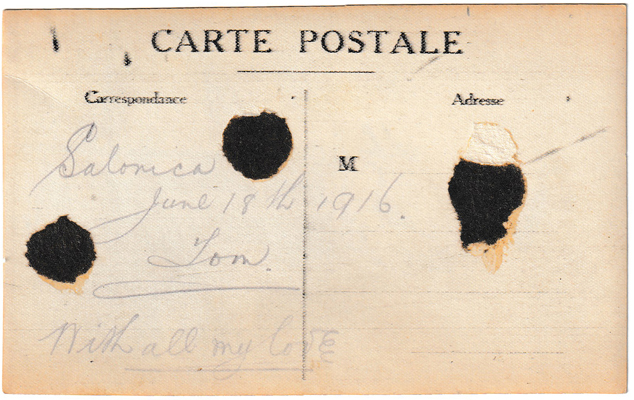 CARTE POSTALE
Correspondance
Adresse
M
Salonica
June 18th 1916.
Tom.
With all my love